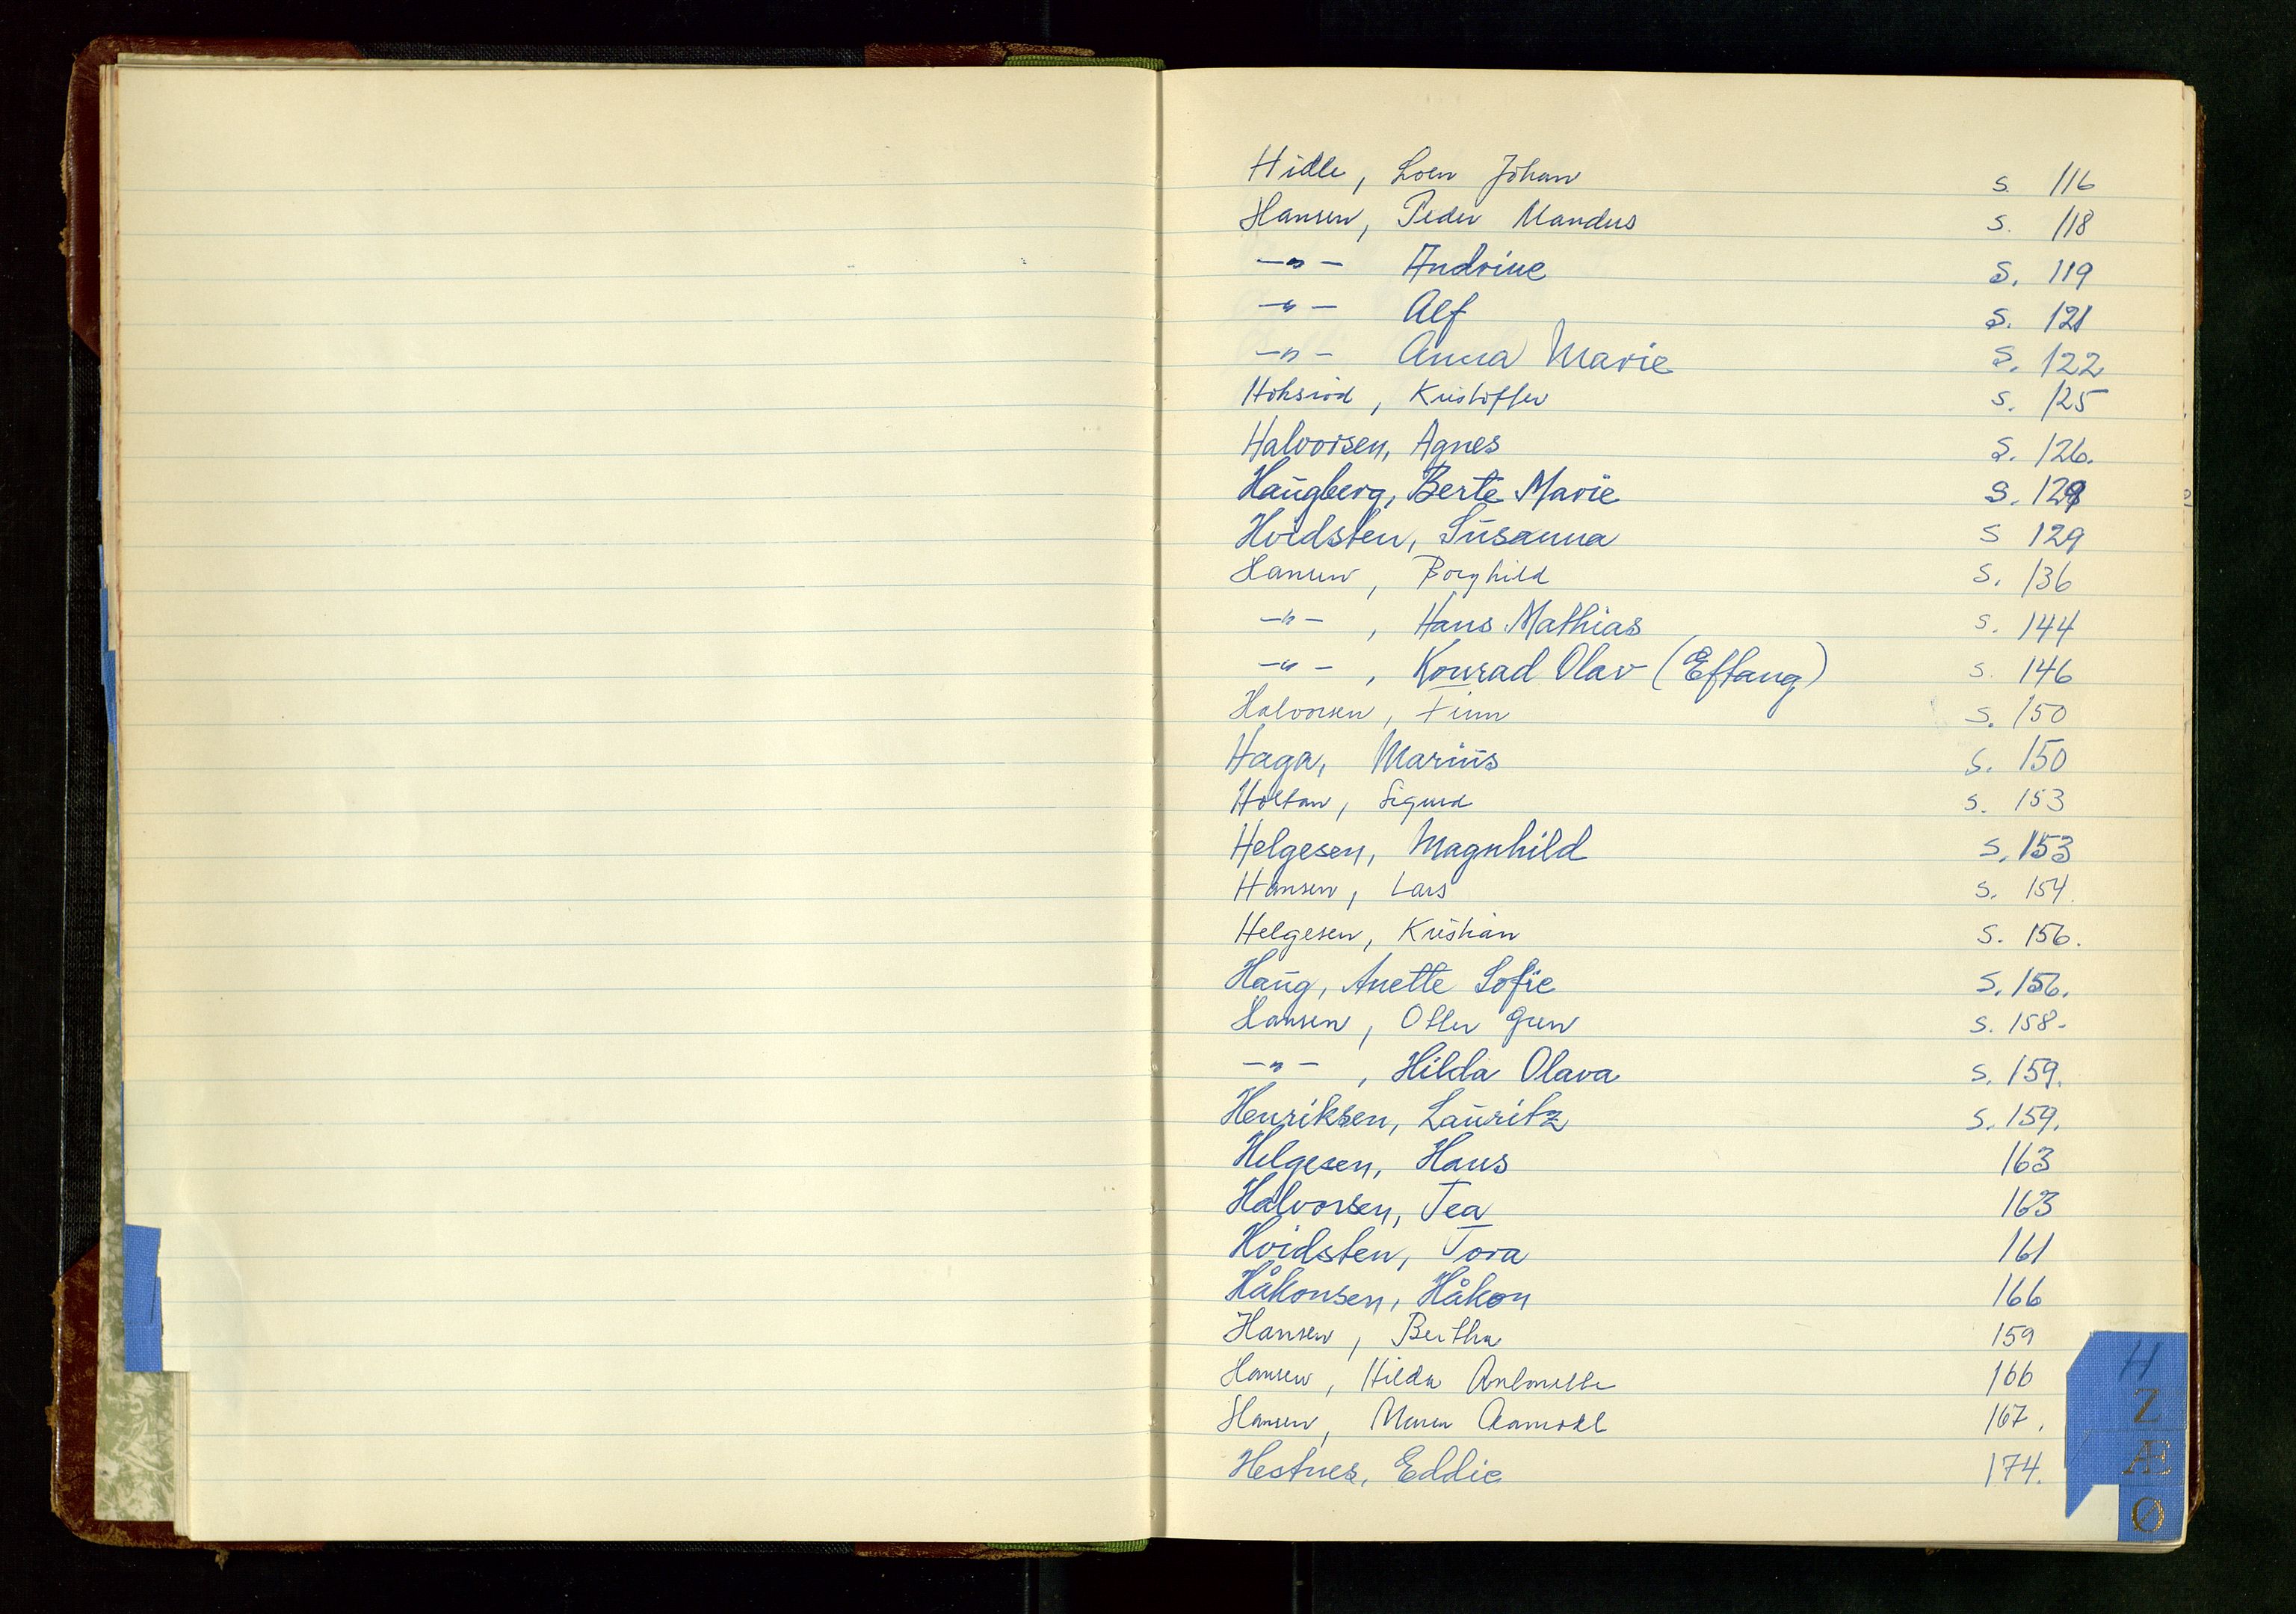 Hidle, Loen Johan s. 116
Hansen, Peder Mandus s. 118
—"— Andrine s. 119
—"— Alf s. 121
—"— Anna Marie s. 122
Kristoffer s. 125
Halvorsen, Agnes s. 126.
Haugberg, Berte Marie s. 128
Hvidsten, Susanna s 129
Hansen, Borghild s. 136
—"—, Hans Mathias s. 144
—"—, Konrad Olav (Eftang) s. 146
Halvorsen, Finn s. 150
Haga, Marius s. 150
Holtan, Sigurd s. 153
Helgesen, Magnhild s. 153
Hansen, Lars s. 154.
Helgesen, Kristian s. 156.
Haug, Anette Sofie s. 156.
Hansen, Otter Gren s. 158.
—"—, Hilda Olava s. 159.
Henriksen, Lauritz s. 159.
Helgesen, Hans 163
Halvorsen, Tea 163
Hvidsten, Tora 161
Håkonsen, Håkon 166
Hansen, Bertha 159
Hansen, Hilda Antonette 166
Hansen, Maren 167.
Hestnes, Eddie 174.
H
Z
Æ
Ø